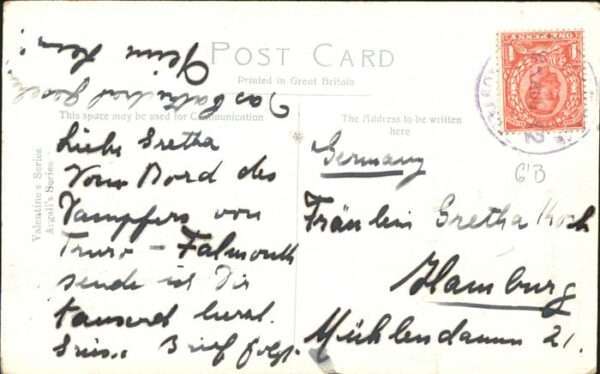 POST CARD
Printed in Great Britain
This space may be used for Communication
The Address to be written
here
Valentine's Series
Argall's Series
ONE PENNY
1 1
Liebe Gretha
Vom Bord des
Dampfers von
Truro - Falmouth
sende ich Dir
tausend herzl.
Grüsse. Brief folgt.
Das
Deine
Germany
Fräulein Gretha Koch
Hamburg
Mühlendamm 21.
6'B